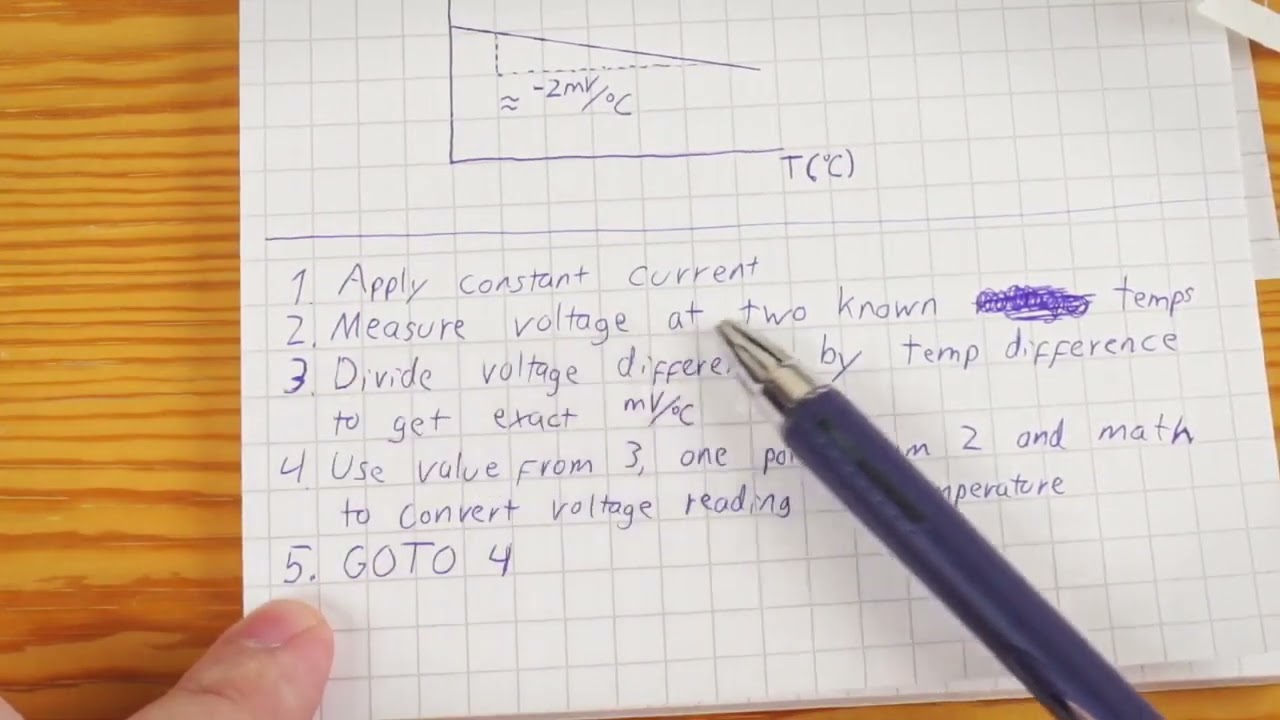 ≈ -2mV/°C
T(°C)
1. Apply constant current
2. Measure voltage at two known temps
3. Divide voltage differe by temp difference
to get exact mV/°C
4. Use value from 3, one 2 and math
to convert voltage reading
5. GOTO 4